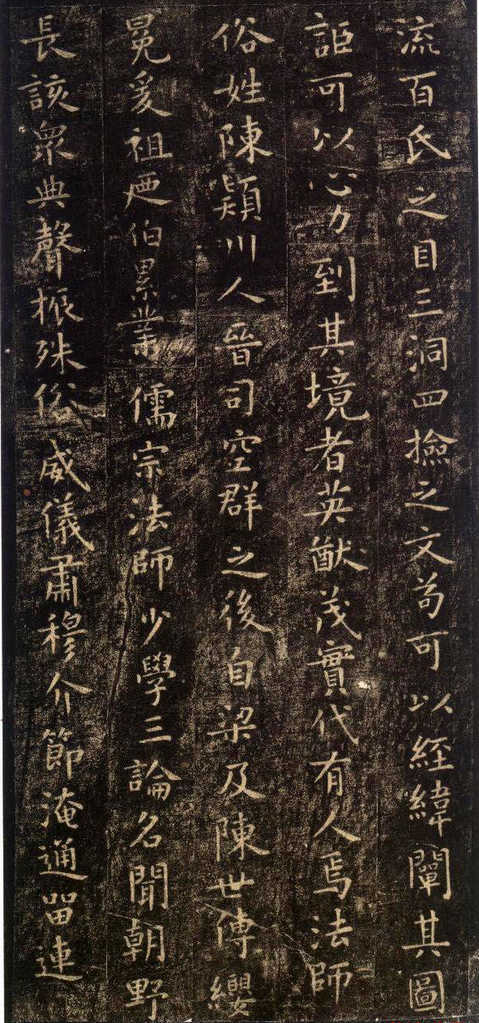 流百氏之目三洞四撿之文苟可以經緯闡其圖
詎可以心力到其境者英猷茂實代有人焉法師
俗姓陳潁川人晉司空群之後自梁及陳世傳纓
冕爰祖及伯累業儒宗法師少學三論名聞朝野
長該眾典聲振殊俗威儀肅穆介節淹通留連